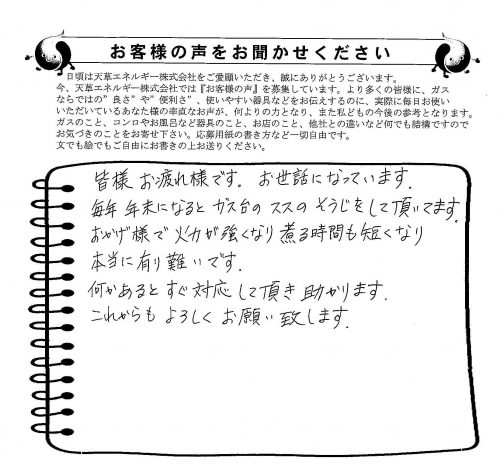 お客様の声をお聞かせください
日頃は天草エネルギー株式会社をご愛顧いただき、誠にありがとうございます。
今、天草エネルギー株式会社では『お客様の声』を募集しています。より多くの皆様に、ガス
ならではの”良さ”や”便利さ”、使いやすい器具などをお伝えするのに、実際に毎日お使い
いただいているあなた様の率直なお声が、何よりの力となり、また私どもの今後の参考となります。
ガスのこと、コンロやお風呂など器具のこと、お店のこと、他社との違いなど何でも結構ですので
お気づきのことをお寄せ下さい。応募用紙の書き方など一切自由です。
文でも絵でもご自由にお書きの上お送りください。
皆様 お疲れ様です。 お世話になっています.
毎年 年末になると ガス台の ススの そうじをして頂いてます.
おかげ様で 火力が強くなり 煮る時間も 短くなり
本当に有り難いです.
何かあると すぐ 対応して頂き 助かります.
これからも よろしく お願い致します.